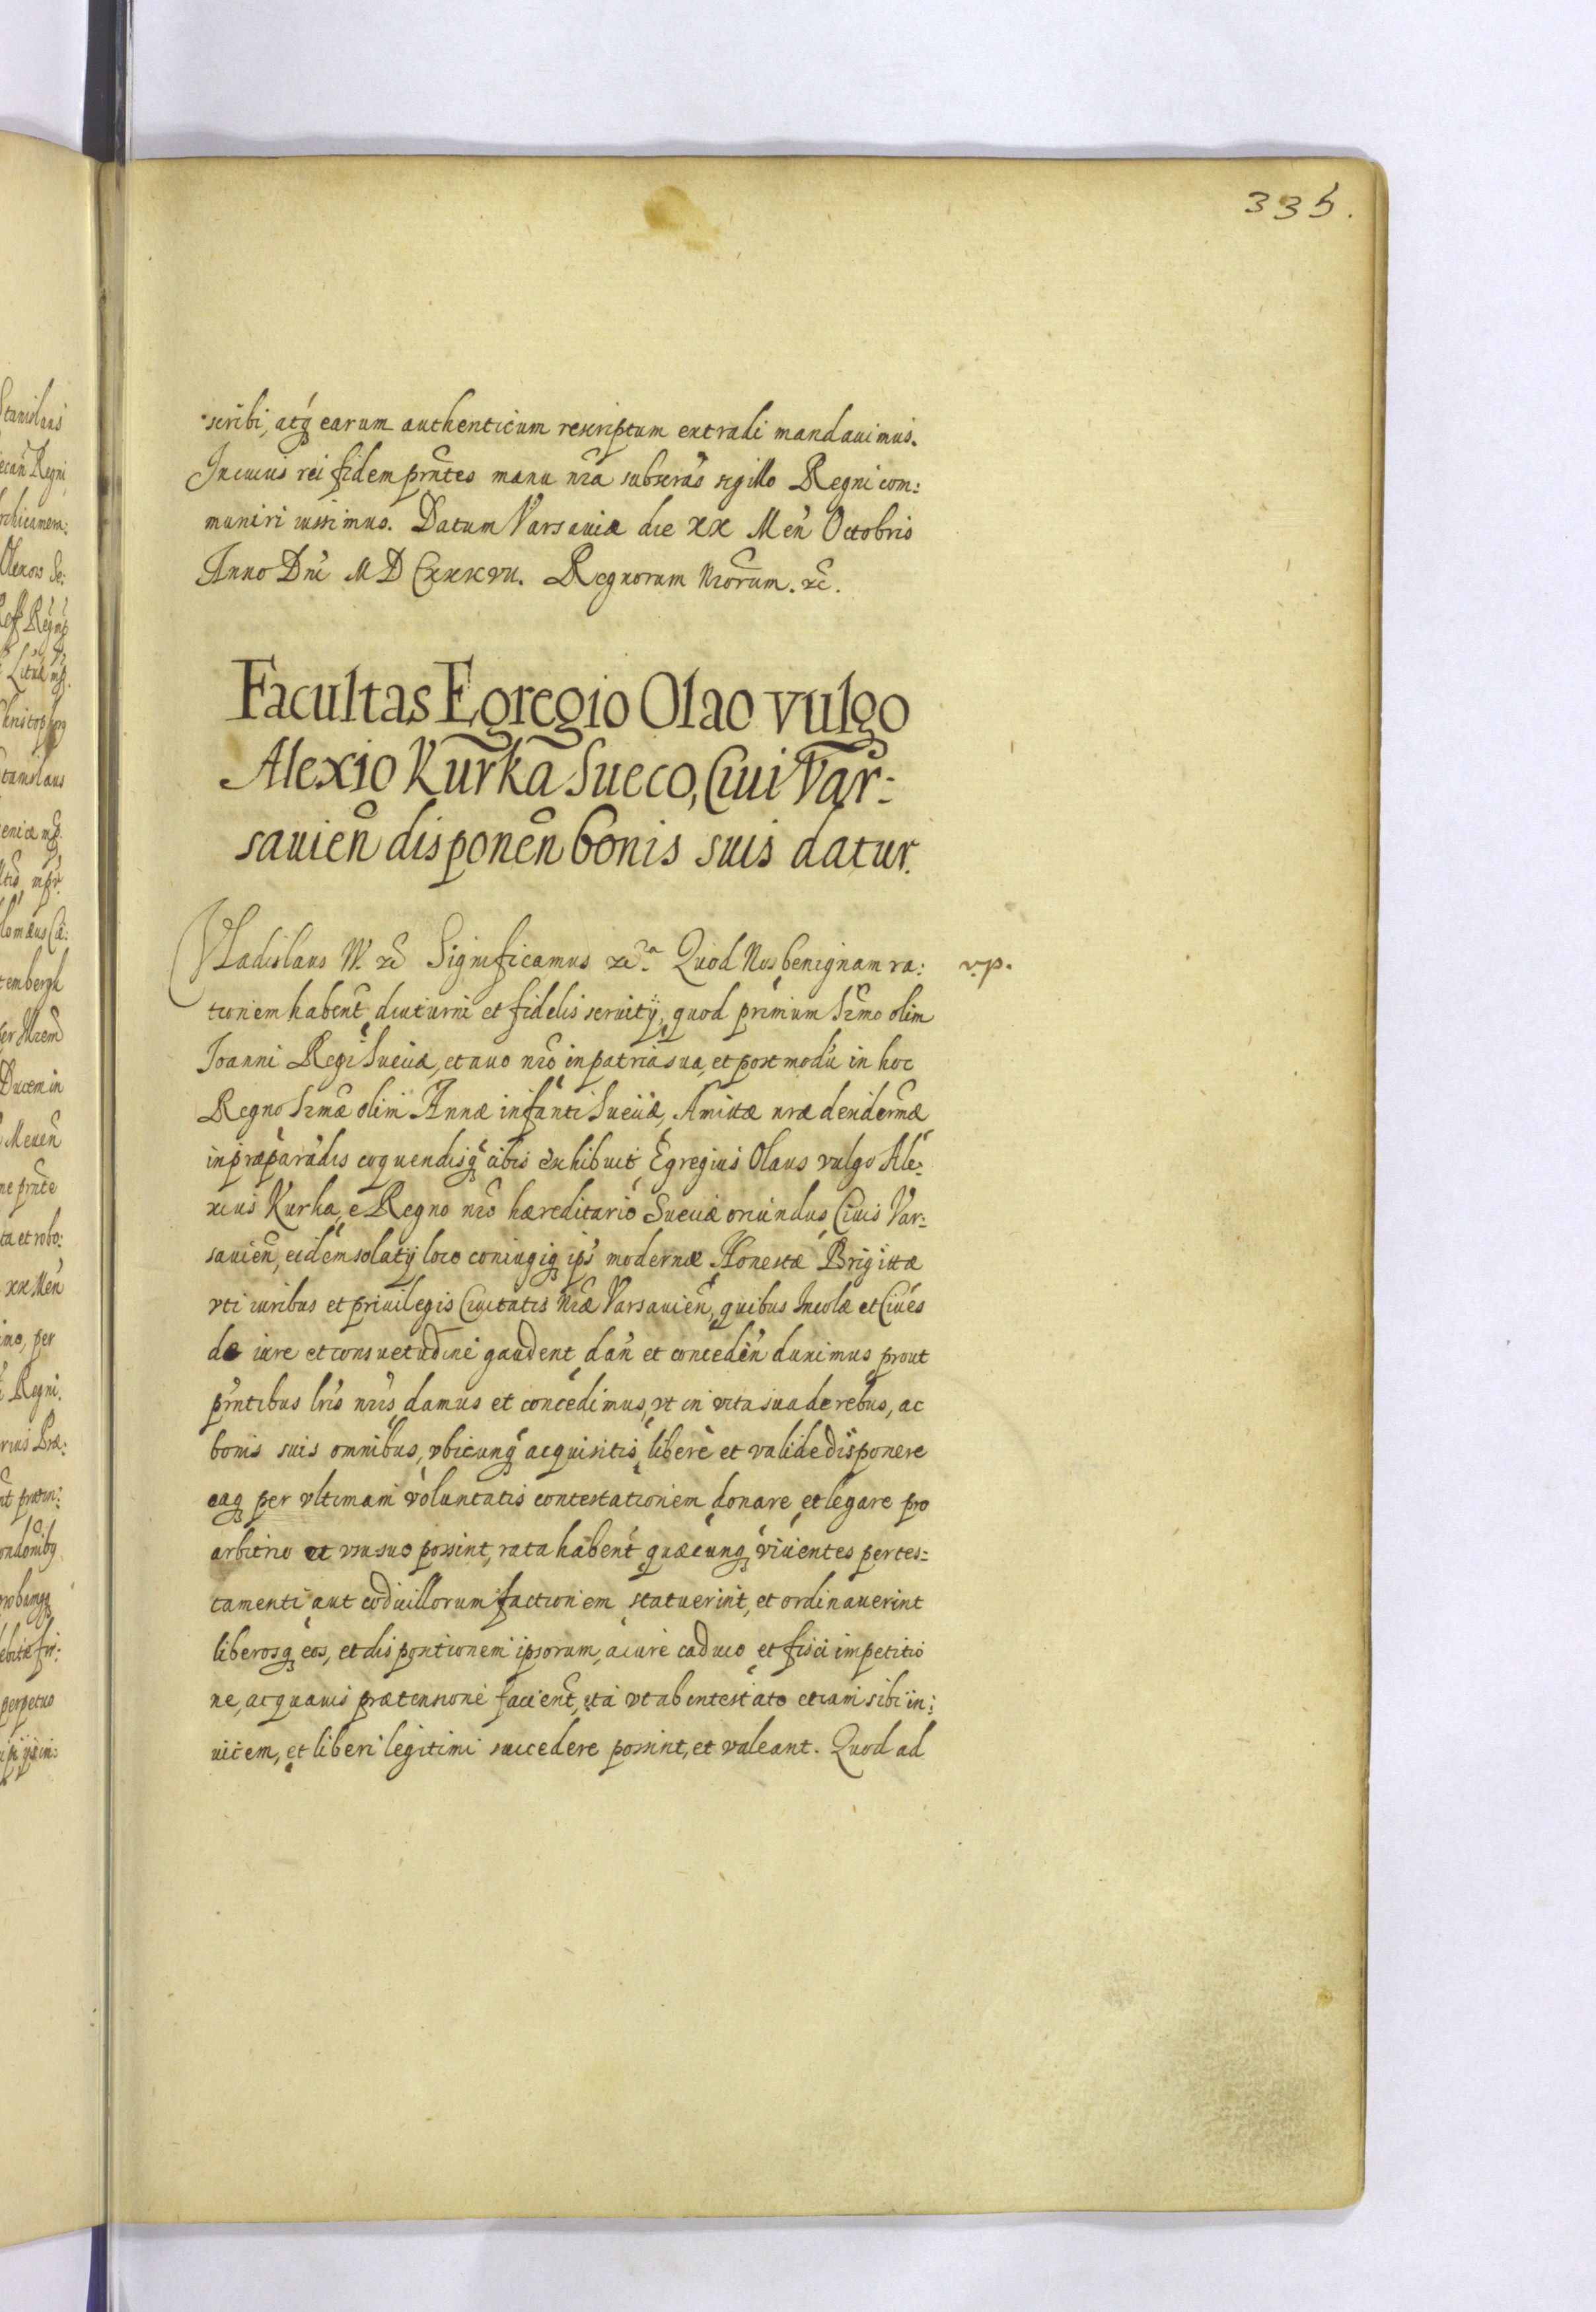 335.
scribi, atq́ earum authenticum rescriptum extradi mandauimus.
In cuius rei fidem prñtes manu nr̃a subscrãs sigillo Regni com:
muniri iussimus. Datum Varsauiæ die XX Meñ Octobris
Anno Dñi MDCXXXVII. Regnorum Nrõrum. &c̃.
Facultas Egregio Olao vulgo
Alexio Kurka Sueco, Ciui Var:
sauieñ disponeñ bonis suis datur.
Vladislaus IV. &c̃ Significamus &c̃.ª Quod Nos benignam ra:
v.p.
tionem habeñt diuturni et fidelis seruitÿ, quod primum Sr̃mo olim
Joanni Regi Sueciæ, et auo nrõ in patria sua, et postmodũ in hoc
Regno Sr̃mæ olim Annæ infanti Sueciæ, Amittæ nræ desiderr̃mæ
in præparãdis coquendisq́ cibis exhibuit Egregius Olaus vulgo Ale:
xius Kurka, e Regno nrõ hæreditario Sueciæ oriundus, Ciuis Var:
sauieñ, eidem solatÿ loco coniugiq́ ips̃ modernæ Honestæ Brigittæ
vti iuribus et priuilegis Ciuitatis Nr̃æ Varsauieñ, quibus Incolæ et Ciues
de iure et consuetudine gaudent dañ et concedeñ duximus prout
prñtibus lrĩs nrĩs damus et concedimus, vt in vita sua de rebus, ac
bonis suis omnibus, vbicunq́ acquisitis, libere et valide disponere
eaq́ per vltimam voluntatis contestationem donare et legare pro
arbitrio et vsu suo possint, rata habeñt quæcunq́ viuentes per tes:
tamenti aut codicillorum factionem statuerint, et ordinauerint
liberosq́ eos, et dispositionem ipsorum, a iure caduco et fisci impetitio
ne, ac quauis prætensione facieñt, ita vt ab intestato etiam sibi in:
uicem, et liberi legitimi succedere possint, et valeant. Quod ad